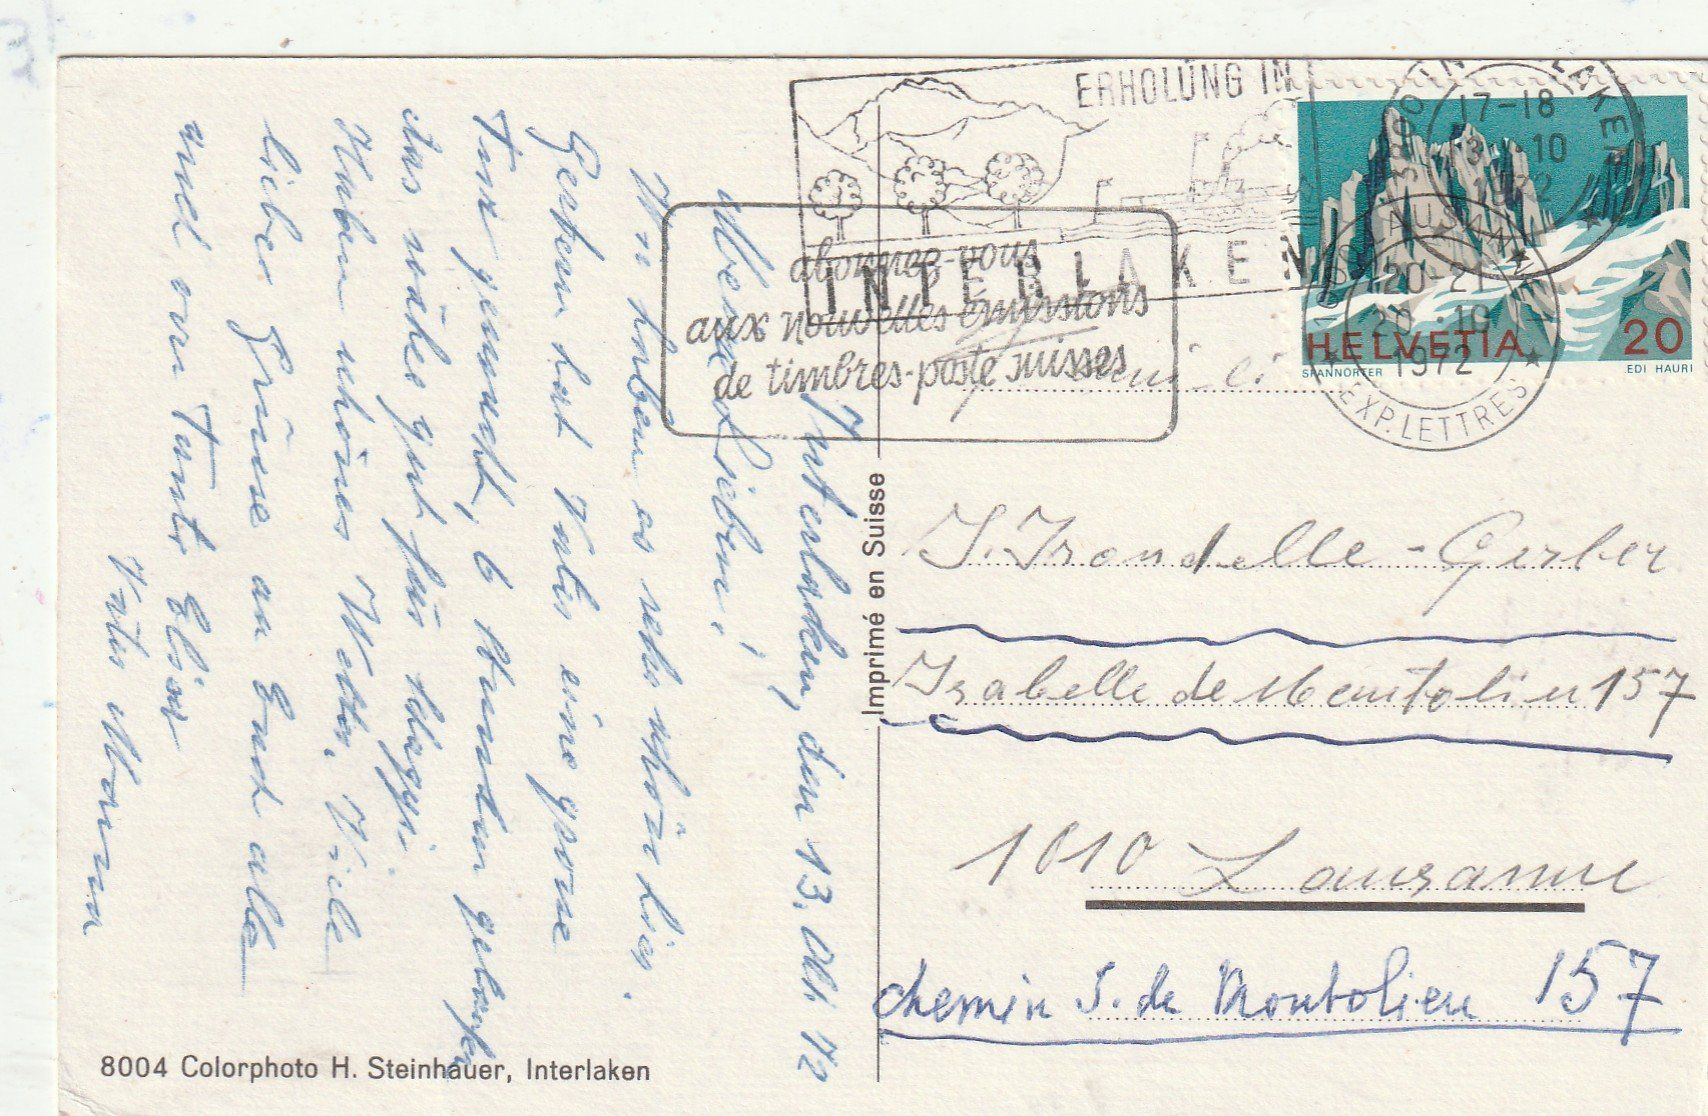 ERHOLUNG IN
INTERLAKEN
3800 INTERLAKEN
17-18
13.10
1972
abonnez-vous
aux nouvelles émissions
de timbres-poste suisses
1000 LAUSANNE 1
20-21
20.10
1972
EXP. LETTRES
HELVETIA 20
SPANNÖRTER
EDI HAURI
Interlaken, den 13. Okt. 72
Meine Lieben!
Wir haben es sehr schön hier.
Gestern hat Vater eine grosse
Tour gemacht, 6 Stunden gelaufen
das wäre gut für
Haben schönes Wetter. Viele
liebe Grüsse an Euch alle
und von Tante
Vater
Famili
J. Irondelle-Gerber
Isabelle de Mentolieu 157
1010 Lausanne
chemin I. de Montolieu 157
Imprimé en Suisse
8004 Colorphoto H. Steinhauer, Interlaken